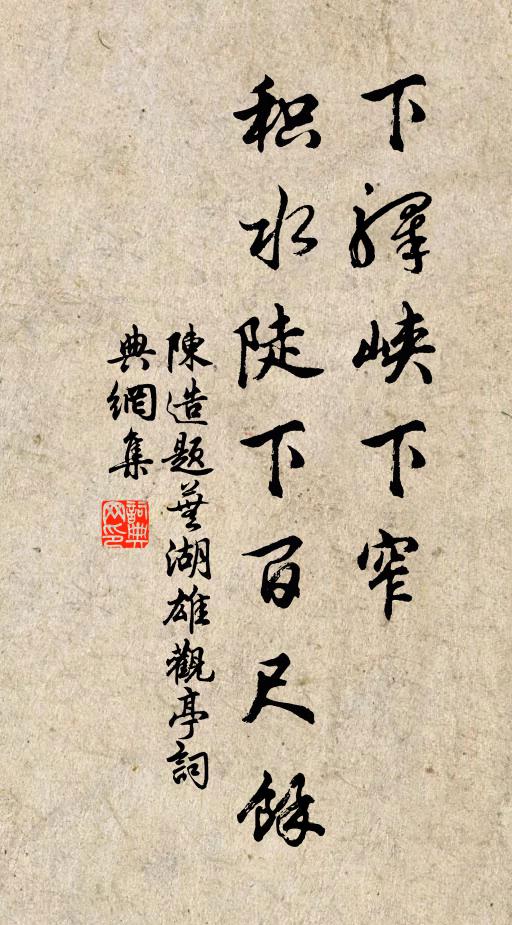 下驛峽下窄
积水陡下百尺餘
陳造題蕪湖雄觀亭詞
典網集
詞典
网印